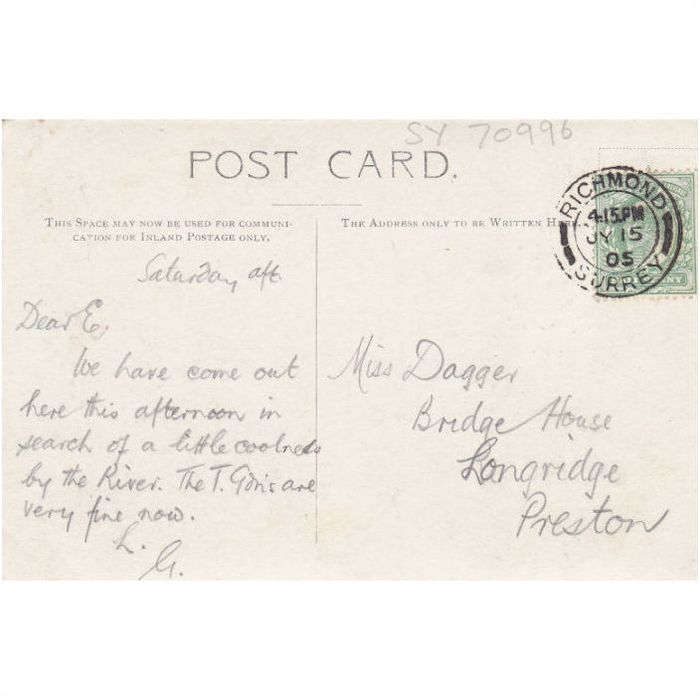 SY 70996
POST CARD.
THIS SPACE MAY NOW BE USED FOR COMMUNI-
CATION FOR INLAND POSTAGE ONLY.
THE ADDRESS ONLY TO BE WRITTEN
RICHMOND
4.15PM
JY 15
05
SURREY
Saturday aft.
Dear E,
We have come out
here this afternoon in
search of a little coolness
by the River. The T. Gdns are
very fine now.
L.
G.
Miss Dagger
Bridge House
Longridge
Preston